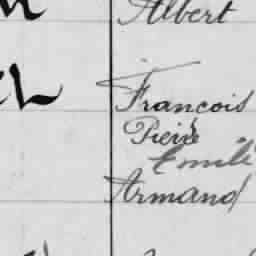 Albert
Francois
Pierre
Emile
Armand